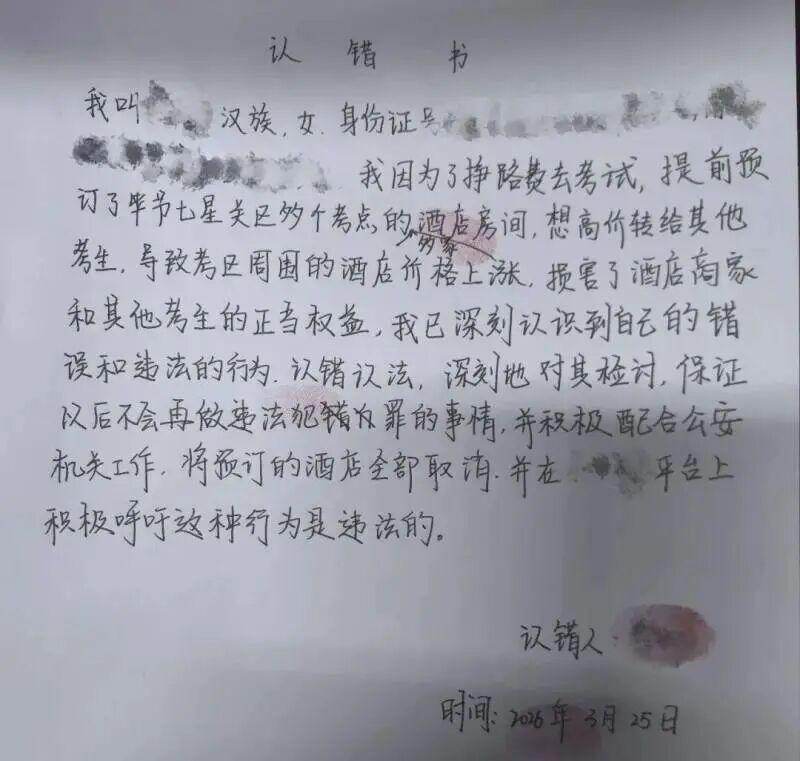 认错书
我叫 汉族,女.身份证号
我因为了挣路费去考试,提前预
订了毕节七星关区多个考点的多家酒店房间,想高价转给其他
考生.导致考区周围的酒店价格上涨.损害了酒店商家
和其他考生的正当权益,我已深刻认识到自己的错
误和违法的行为.认错认法,深刻地对其检讨,保证
以后不会再做违法犯罪的事情,并积极配合公安
机关工作.将预订的酒店全部取消.并在 平台上
积极呼吁这种行为是违法的。
认错人
时间:2026年3月25日